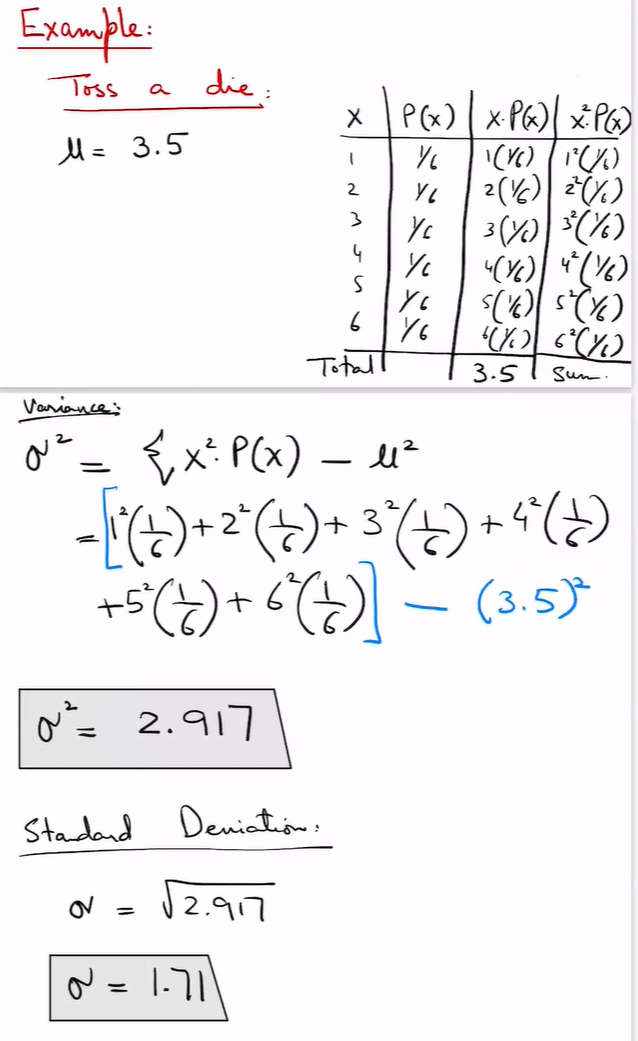 Example:
Toss a die:
μ = 3.5
x | P(x) | x.P(x) | x².P(x)
1 | 1/6 | 1(1/6) | 1²(1/6)
2 | 1/6 | 2(1/6) | 2²(1/6)
3 | 1/6 | 3(1/6) | 3²(1/6)
4 | 1/6 | 4(1/6) | 4²(1/6)
5 | 1/6 | 5(1/6) | 5²(1/6)
6 | 1/6 | 6(1/6) | 6²(1/6)
Total | | 3.5 | Sum.
Variance:
σ² = Σ x². P(x) − μ²
= [1²(1/6) + 2²(1/6) + 3²(1/6) + 4²(1/6)
+ 5²(1/6) + 6²(1/6)] − (3.5)²
σ² = 2.917
Standard Deviation:
σ = √2.917
σ = 1.71